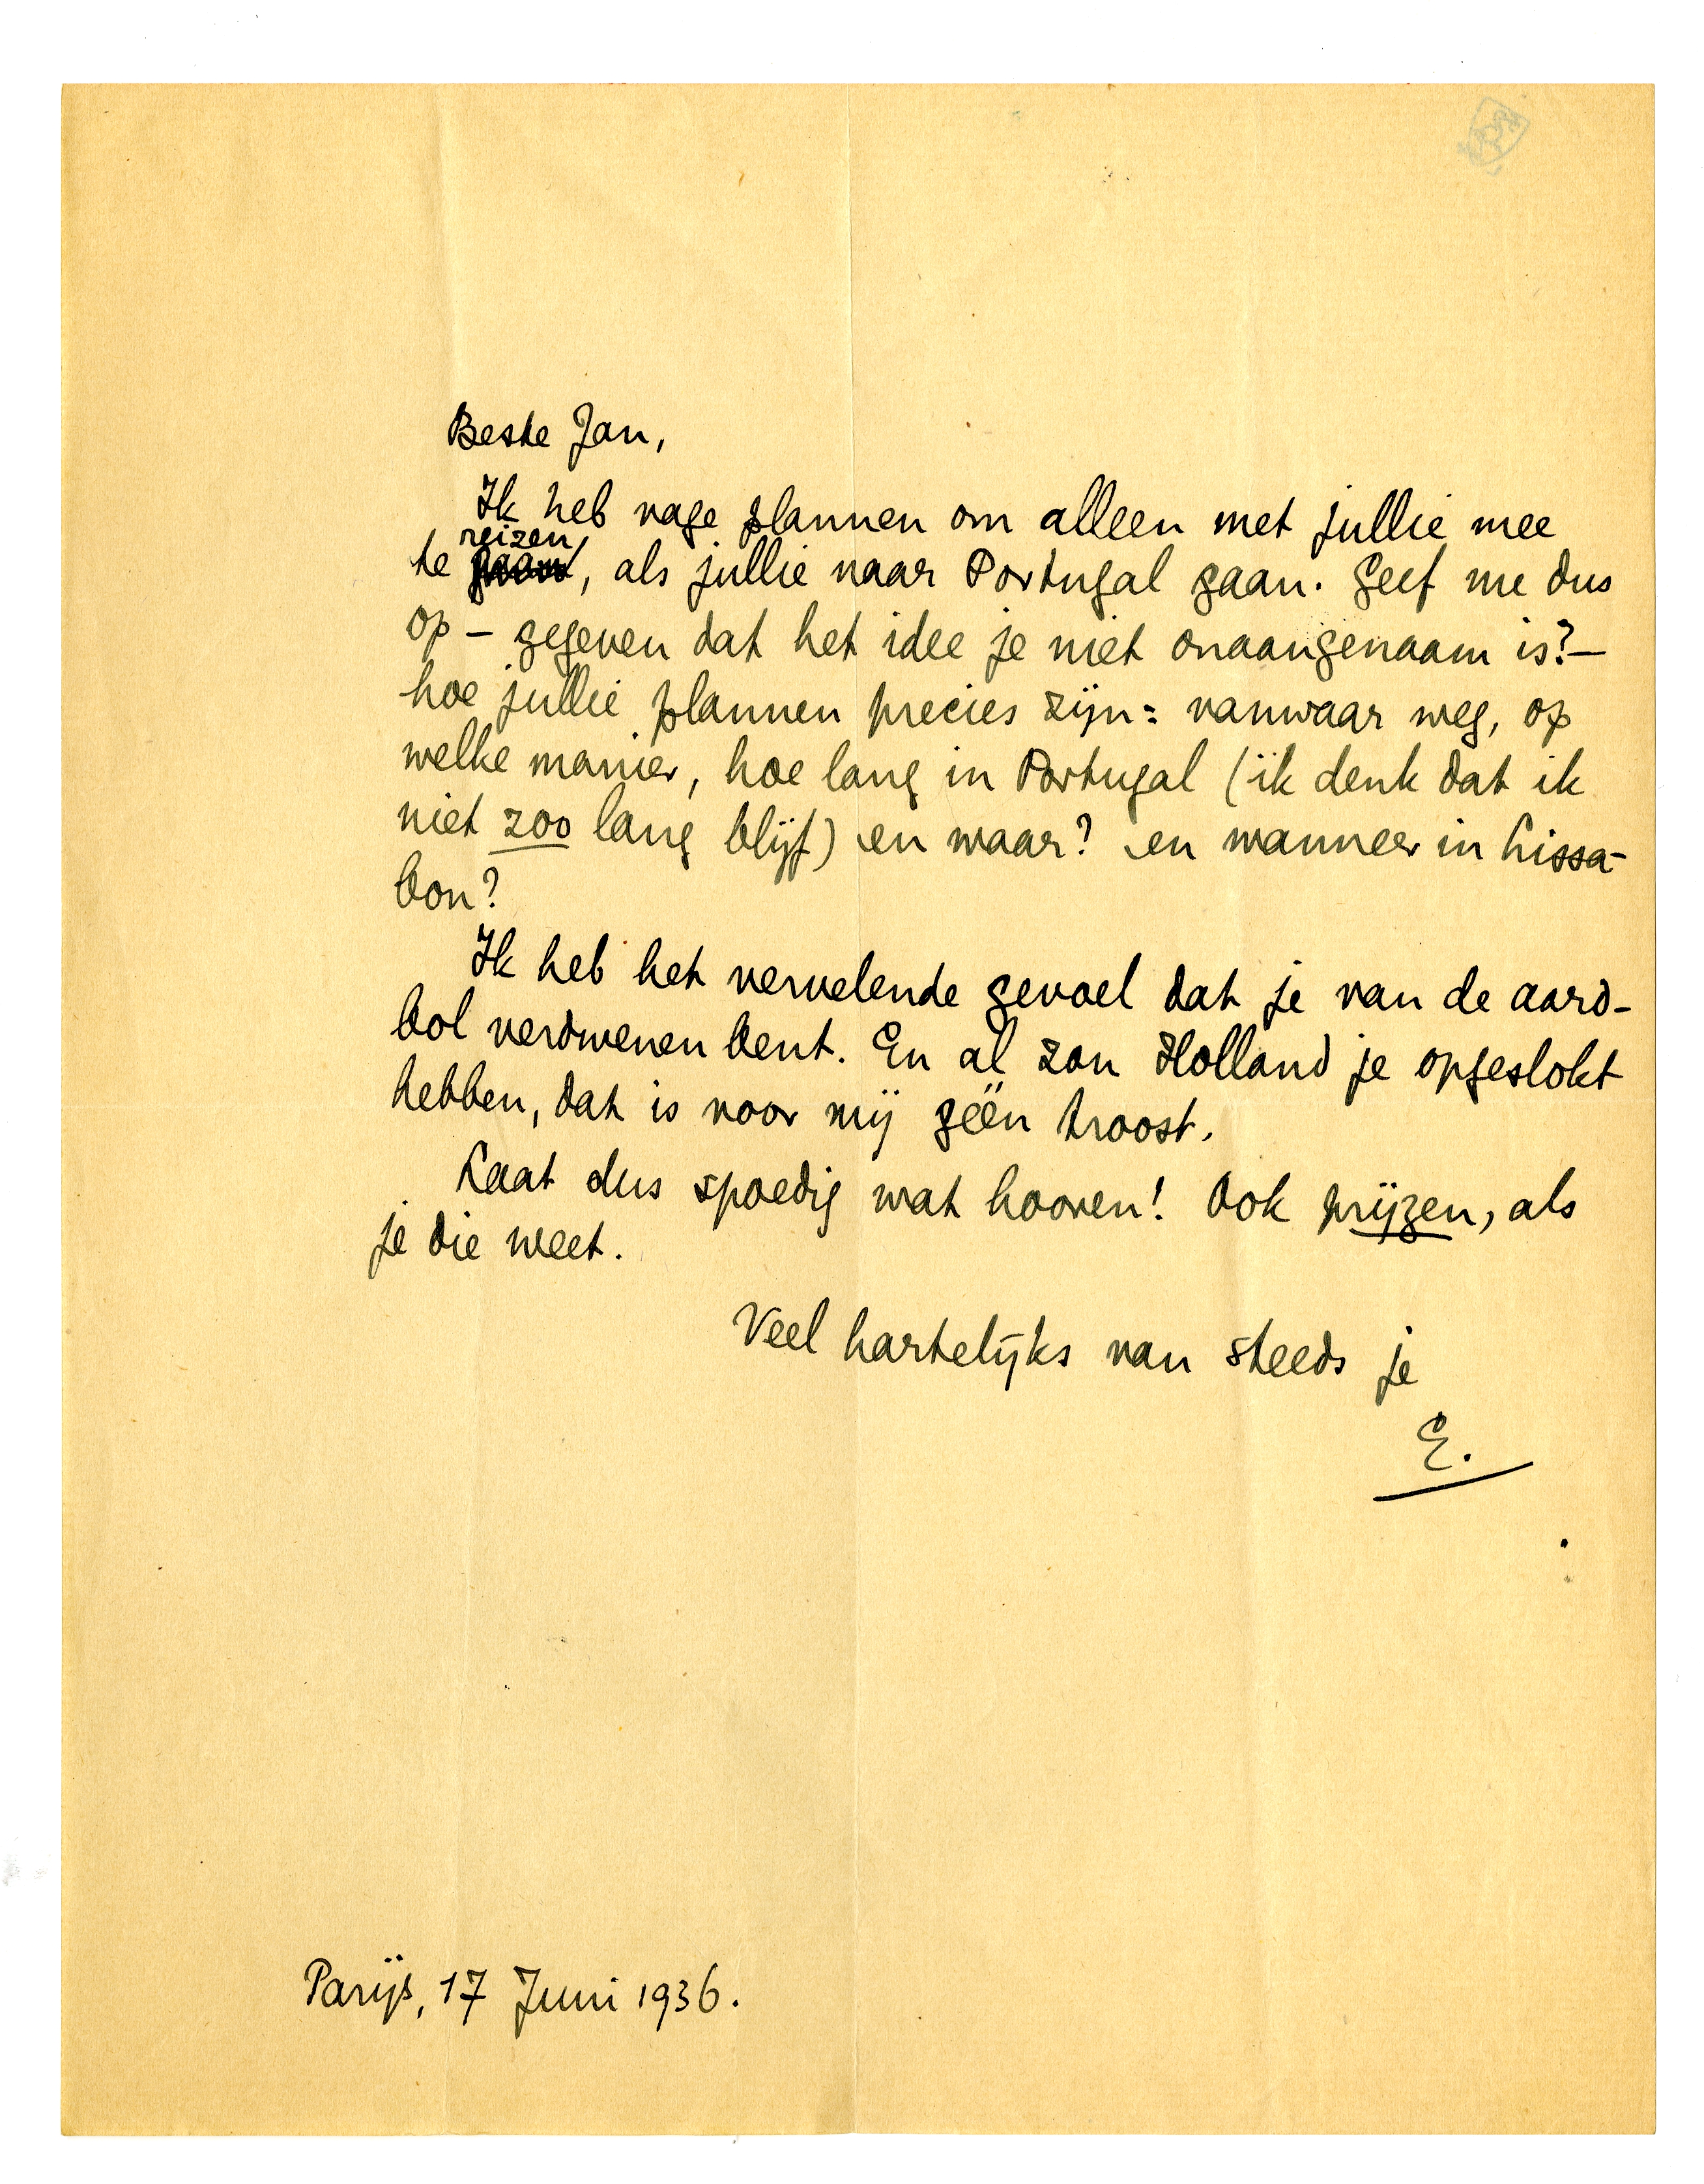 Beste Jan,
Ik heb vage plannen om alleen met jullie mee
te reizen, als jullie naar Portugal gaan. Geef me dus
op – gegeven dat het idee je niet onaangenaam is? –
hoe jullie plannen precies zijn: vanwaar weg, op
welke manier, hoe lang in Portugal (ik denk dat ik
niet zoo lang blijf) en waar? en wanneer in Lissa-
bon?
Ik heb het vervelende gevoel dat je van de aard-
bol verdwenen bent. En al zou Holland je opgeslokt
hebben, dat is voor mij géén troost.
Laat dus spoedig wat hooren! Ook prijzen, als
je die weet.
Veel hartelijks van steeds je
E.
Parijs, 17 Juni 1936.